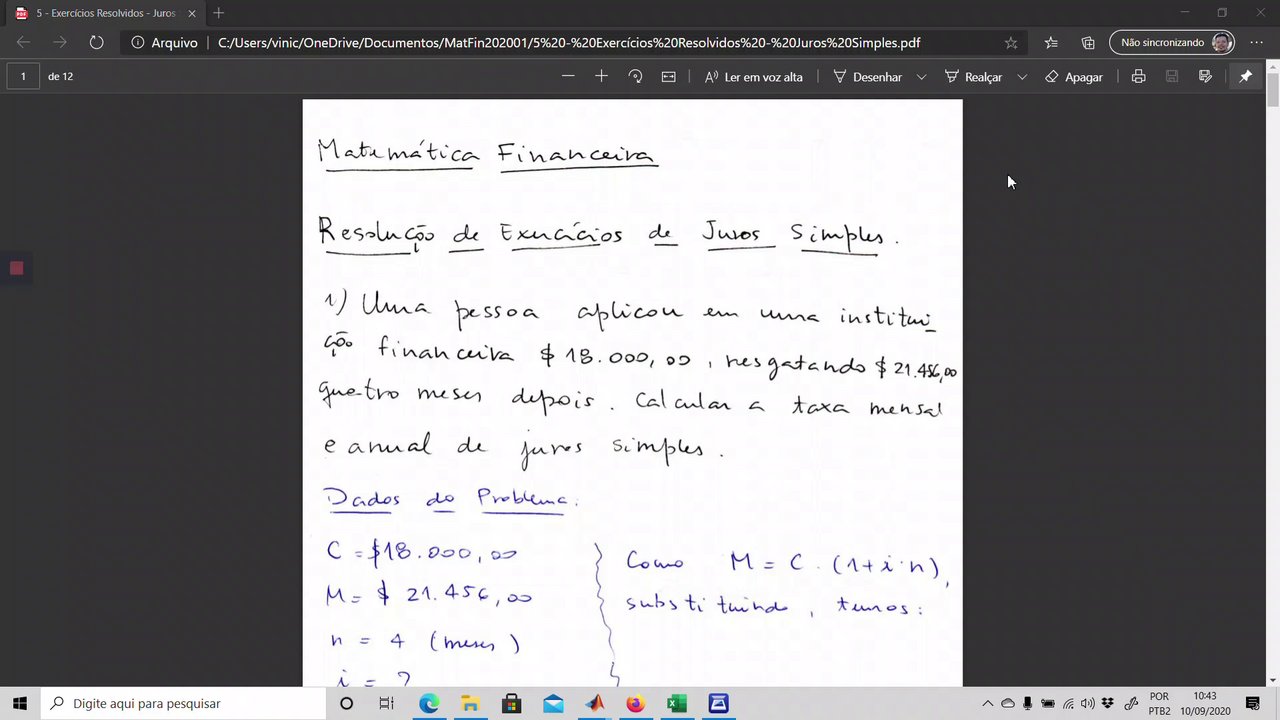 5 - Exercícios Resolvidos - Juros
Arquivo C:/Users/vinic/OneDrive/Documentos/MatFin202001/5%20-%20Exercícios%20Resolvidos%20-%20Juros%20Simples.pdf
Não sincronizando
1 de 12
Ler em voz alta
Desenhar
Realçar
Apagar
Matemática Financeira
Resolução de Exercícios de Juros Simples.
1) Uma pessoa aplicou em uma institui-
ção financeira $ 18.000,00, resgatando $ 21.456,00
quatro meses depois. Calcular a taxa mensal
e anual de juros simples.
Dados do Problema.
C = $18.000,00
M = $ 21.456,00
n = 4 (meses)
i = ?
Como M = C . (1 + i . n),
substituindo, temos:
Digite aqui para pesquisar
POR
PTB2
10:43
10/09/2020